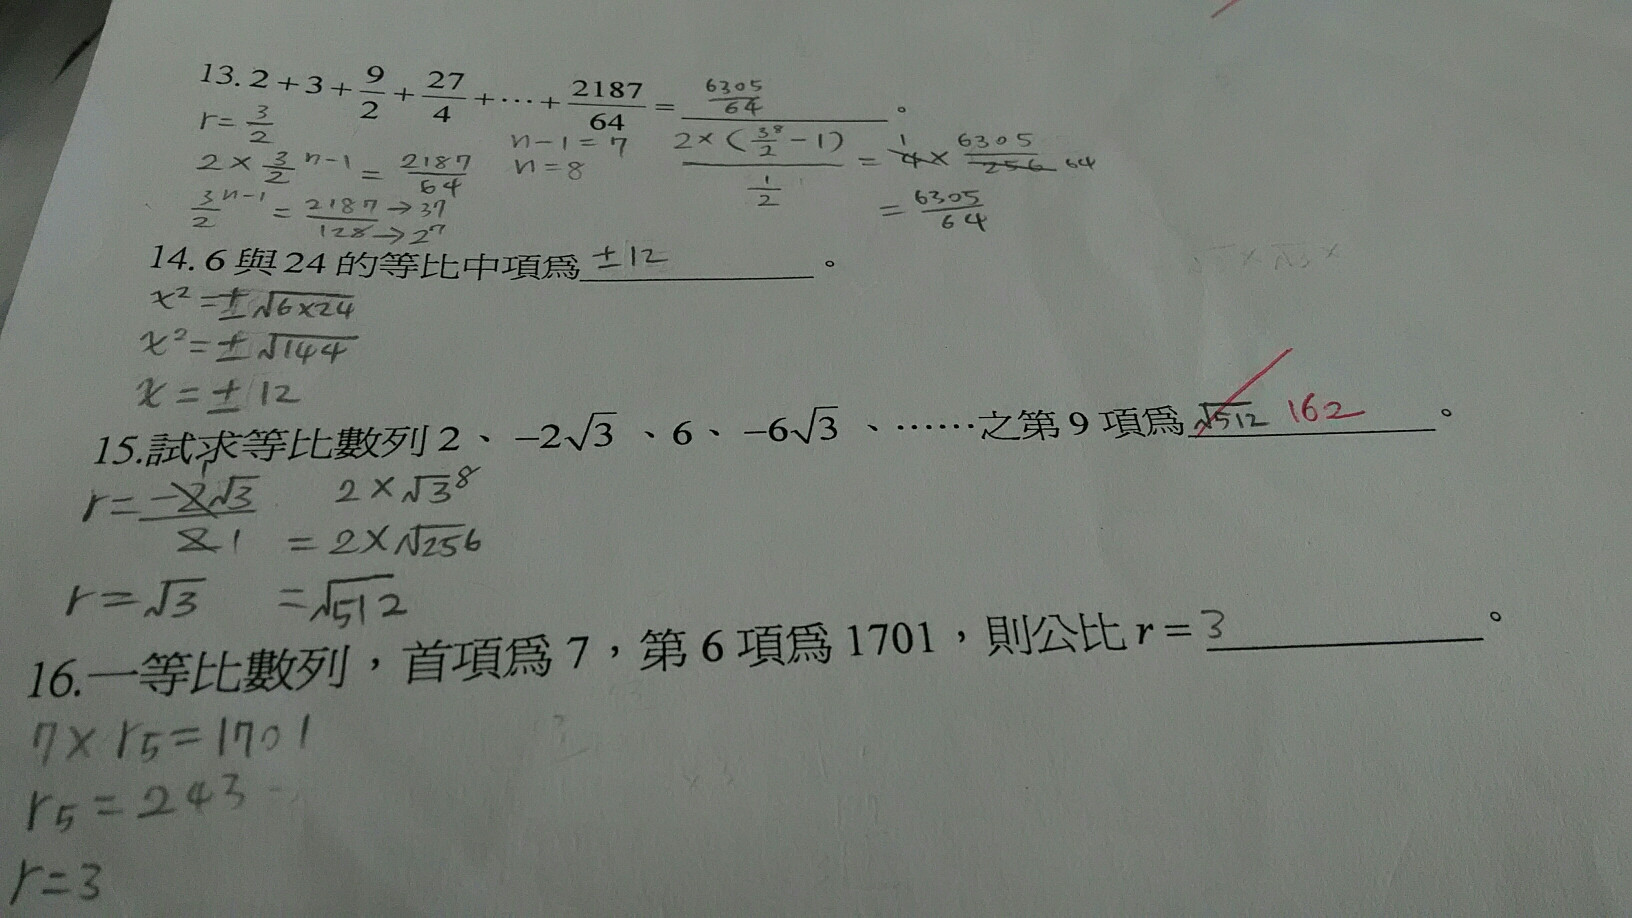 13. 2 + 3 + 9/2 + 27/4 + ⋯ + 2187/64 = 6305/64 。
r = 3/2
2 × 3/2 ⁿ⁻¹ = 2187/64
3/2 ⁿ⁻¹ = 2187/128 → 3⁷ → 2⁷
n-1 = 7
n = 8
2 × (3⁸/2 - 1) / 1/2 = 4 1 × 6305/256 64
= 6305/64
14. 6 與 24 的等比中項爲 ±12 。
x² = ±√6×24
x² = ±√144
x = ±12
15.試求等比數列 2 、 –2√3 、 6 、 –6√3 、 ⋯⋯之第 9 項爲 √512 162 。
r = -2√3 / 2 1
r = √3
2 × √3⁸
= 2×√256
= √512
16.一等比數列，首項爲 7，第 6 項爲 1701，則公比 r = 3 。
7 × r5 = 1701
r5 = 243
r = 3